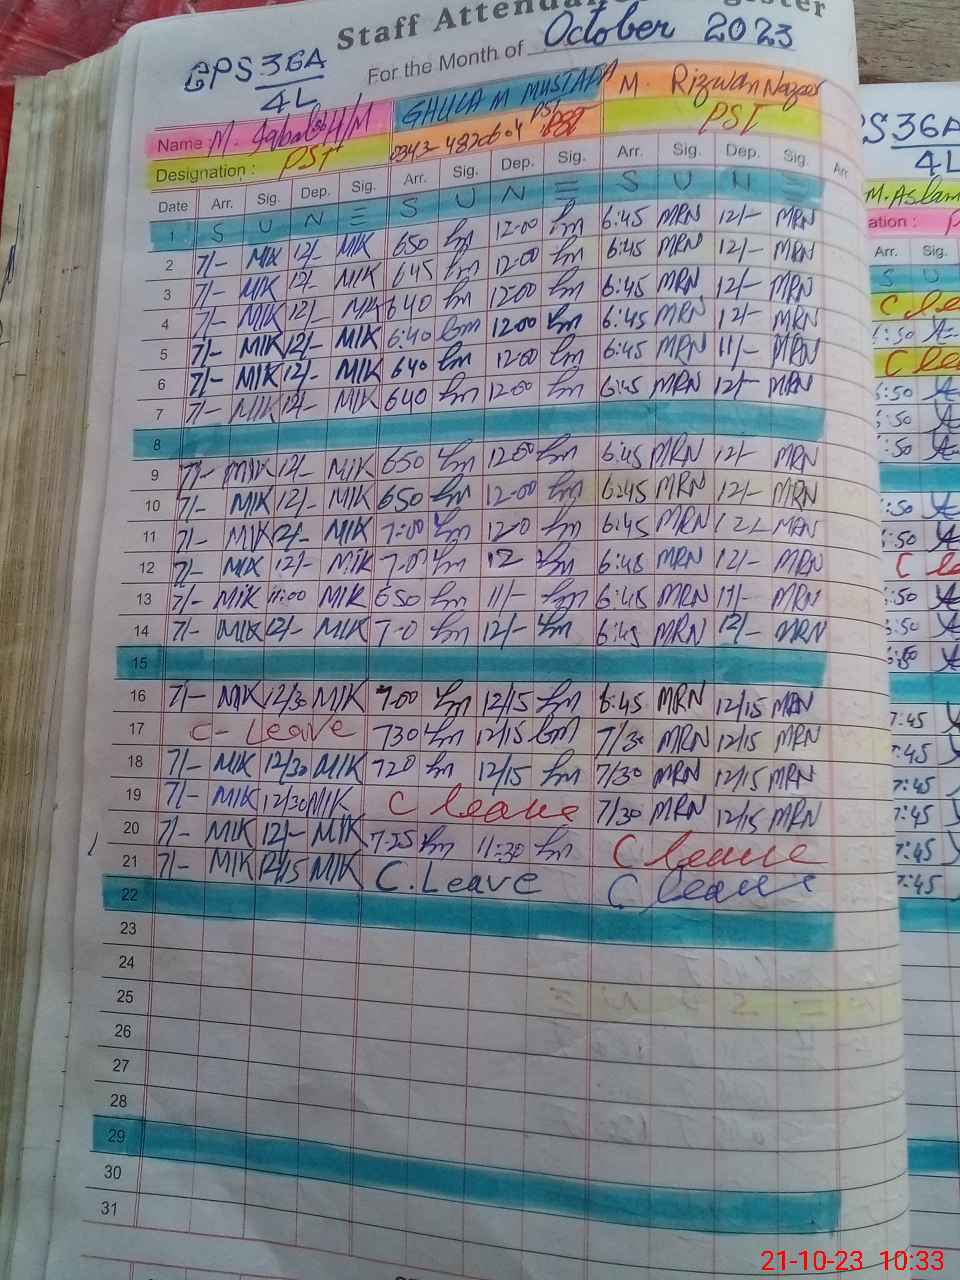 Staff Attendance Register
For the Month of October 2023
GPS 36A
4L
Name M. Iqbal H/M GHULAM MUSTAFA M. Rizwan Nazeer
Designation : PST 0343-4820604 PST PST
Date Arr. Sig. Dep. Sig. Arr. Sig. Dep. Sig. Arr. Sig. Dep. Sig. Arr.
1 S U N E S U N E S U N E
2 7/- MIK 12/- MIK 650 hm 12-00 hm 6:45 MRN 12/- MRN
3 7/- MIK 12/- MIK 645 hm 12-00 hm 6:45 MRN 12/- MRN
4 7/- MIK 12/- MIK 640 hm 1200 hm 6:45 MRN 12/- MRN
5 7/- MIK 12/- MIK 6:40 hm 1200 hm 6:45 MRN 12/- MRN
6 7/- MIK 12/- MIK 640 hm 1200 hm 6:45 MRN 11/- MRN
7 7/- MIK 12/- MIK 640 hm 12-00 hm 6:45 MRN 12/- MRN
8
9 7/- MIK 12/- MIK 650 hm 1200 hm 6:45 MRN 12/- MRN
10 7/- MIK 12/- MIK 650 hm 12-00 hm 6:45 MRN 12/- MRN
11 7/- MIK 12/- MIK 7-00 hm 12-0 hm 6:45 MRN 12/- MRN
12 7/- MIK 12/- MIK 7-0 hm 12 hm 6:45 MRN 12/- MRN
13 7/- MIK 11:00 MIK 650 hm 11/- hm 6:45 MRN 11/- MRN
14 7/- MIK 12/- MIK 7-0 hm 12/- hm 6:45 MRN 12/- MRN
15
16 7/- MIK 12/30 MIK 7-00 hm 12/15 hm 6:45 MRN 12/15 MRN
17 C- Leave 730 hm 12/15 hm 7/30 MRN 12/15 MRN
18 7/- MIK 12/30 MIK 720 hm 12/15 hm 7/30 MRN 12/15 MRN
19 7/- MIK 12/30 MIK C leave 7/30 MRN 12/15 MRN
20 7/- MIK 12/- MIK 7-25 hm 11:30 hm C leave
21 7/- MIK 12/15 MIK C. Leave C leave
22
23
24
25
26
27
28
29
30
31
36A
4L
M. Aslam
Arr. Sig.
S U
6:50
:50
:50
:50
:50
:50
:50
7:45
:45
7:45
7:45
7:45
7:45
21-10-23 10:33